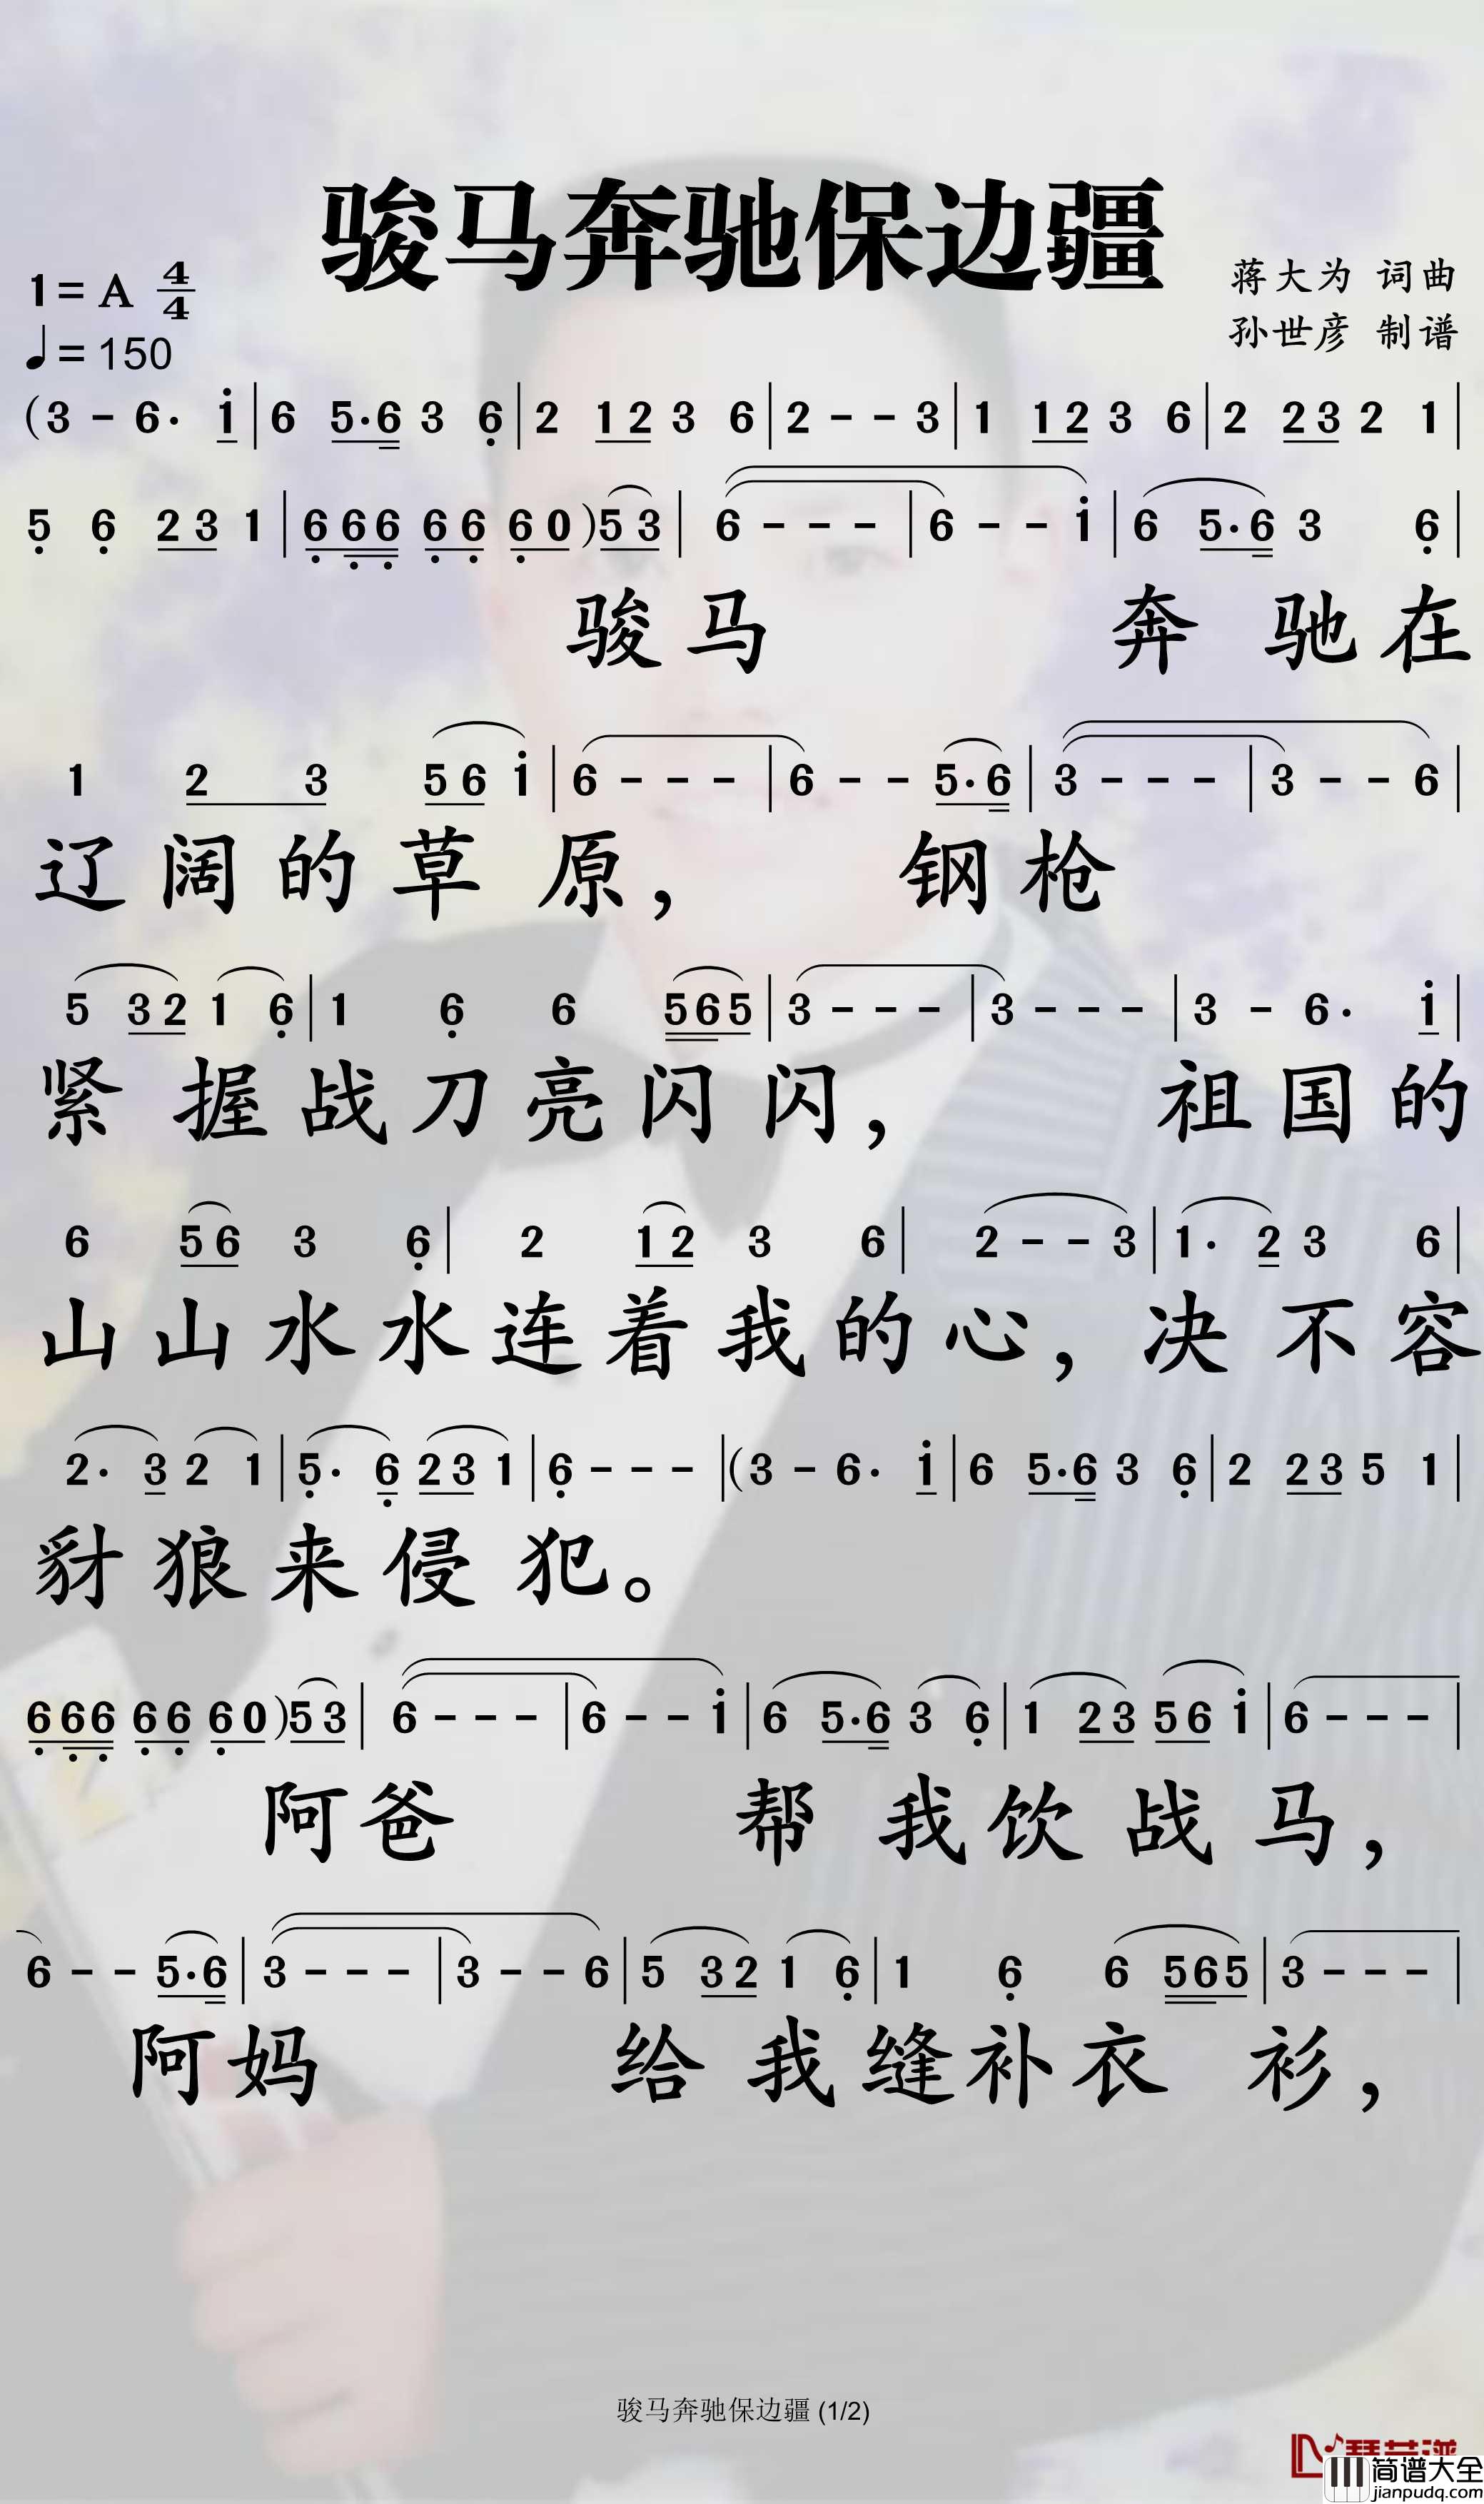 骏马奔驰保边疆
1=A 4/4
蒋大为 词曲
♩=150
孙世彦 制谱
(3 - 6· i | 6 5·6 3 6̣ | 2 1 2 3 6 | 2 - - 3 | 1 1 2 3 6 | 2 2 3 2 1 |
5̣ 6̣ 2 3 1 | 6̣ 6̣ 6̣ 6̣ 6̣ 6̣ 0) 5 3 | 6 - - - | 6 - - i | 6 5·6 3 6̣ |
骏 马 奔 驰 在
1 2 3 5 6 i | 6 - - - | 6 - - 5·6 | 3 - - - | 3 - - 6 |
辽 阔 的 草 原， 钢 枪
5 3 2 1 6̣ | 1 6̣ 6 5 6 5 | 3 - - - | 3 - - - | 3 - 6· i |
紧 握 战 刀 亮 闪 闪， 祖 国 的
6 5 6 3 6̣ | 2 1 2 3 6 | 2 - - 3 | 1· 2 3 6 |
山 山 水 水 连 着 我 的 心，决 不 容
2· 3 2 1 | 5̣· 6̣ 2 3 1 | 6̣ - - - | (3 - 6· i | 6 5·6 3 6̣ | 2 2 3 5 1 |
豺 狼 来 侵 犯。
6̣ 6̣ 6̣ 6̣ 6̣ 6̣ 0) 5 3 | 6 - - - | 6 - - i | 6 5·6 3 6̣ | 1 2 3 5 6 i | 6 - - - |
阿 爸 帮 我 饮 战 马，
6 - - 5·6 | 3 - - - | 3 - - 6 | 5 3 2 1 6̣ | 1 6̣ 6 5 6 5 | 3 - - - |
阿 妈 给 我 缝 补 衣 衫，
骏马奔驰保边疆 (1/2)
简谱大全
jianpudq.com